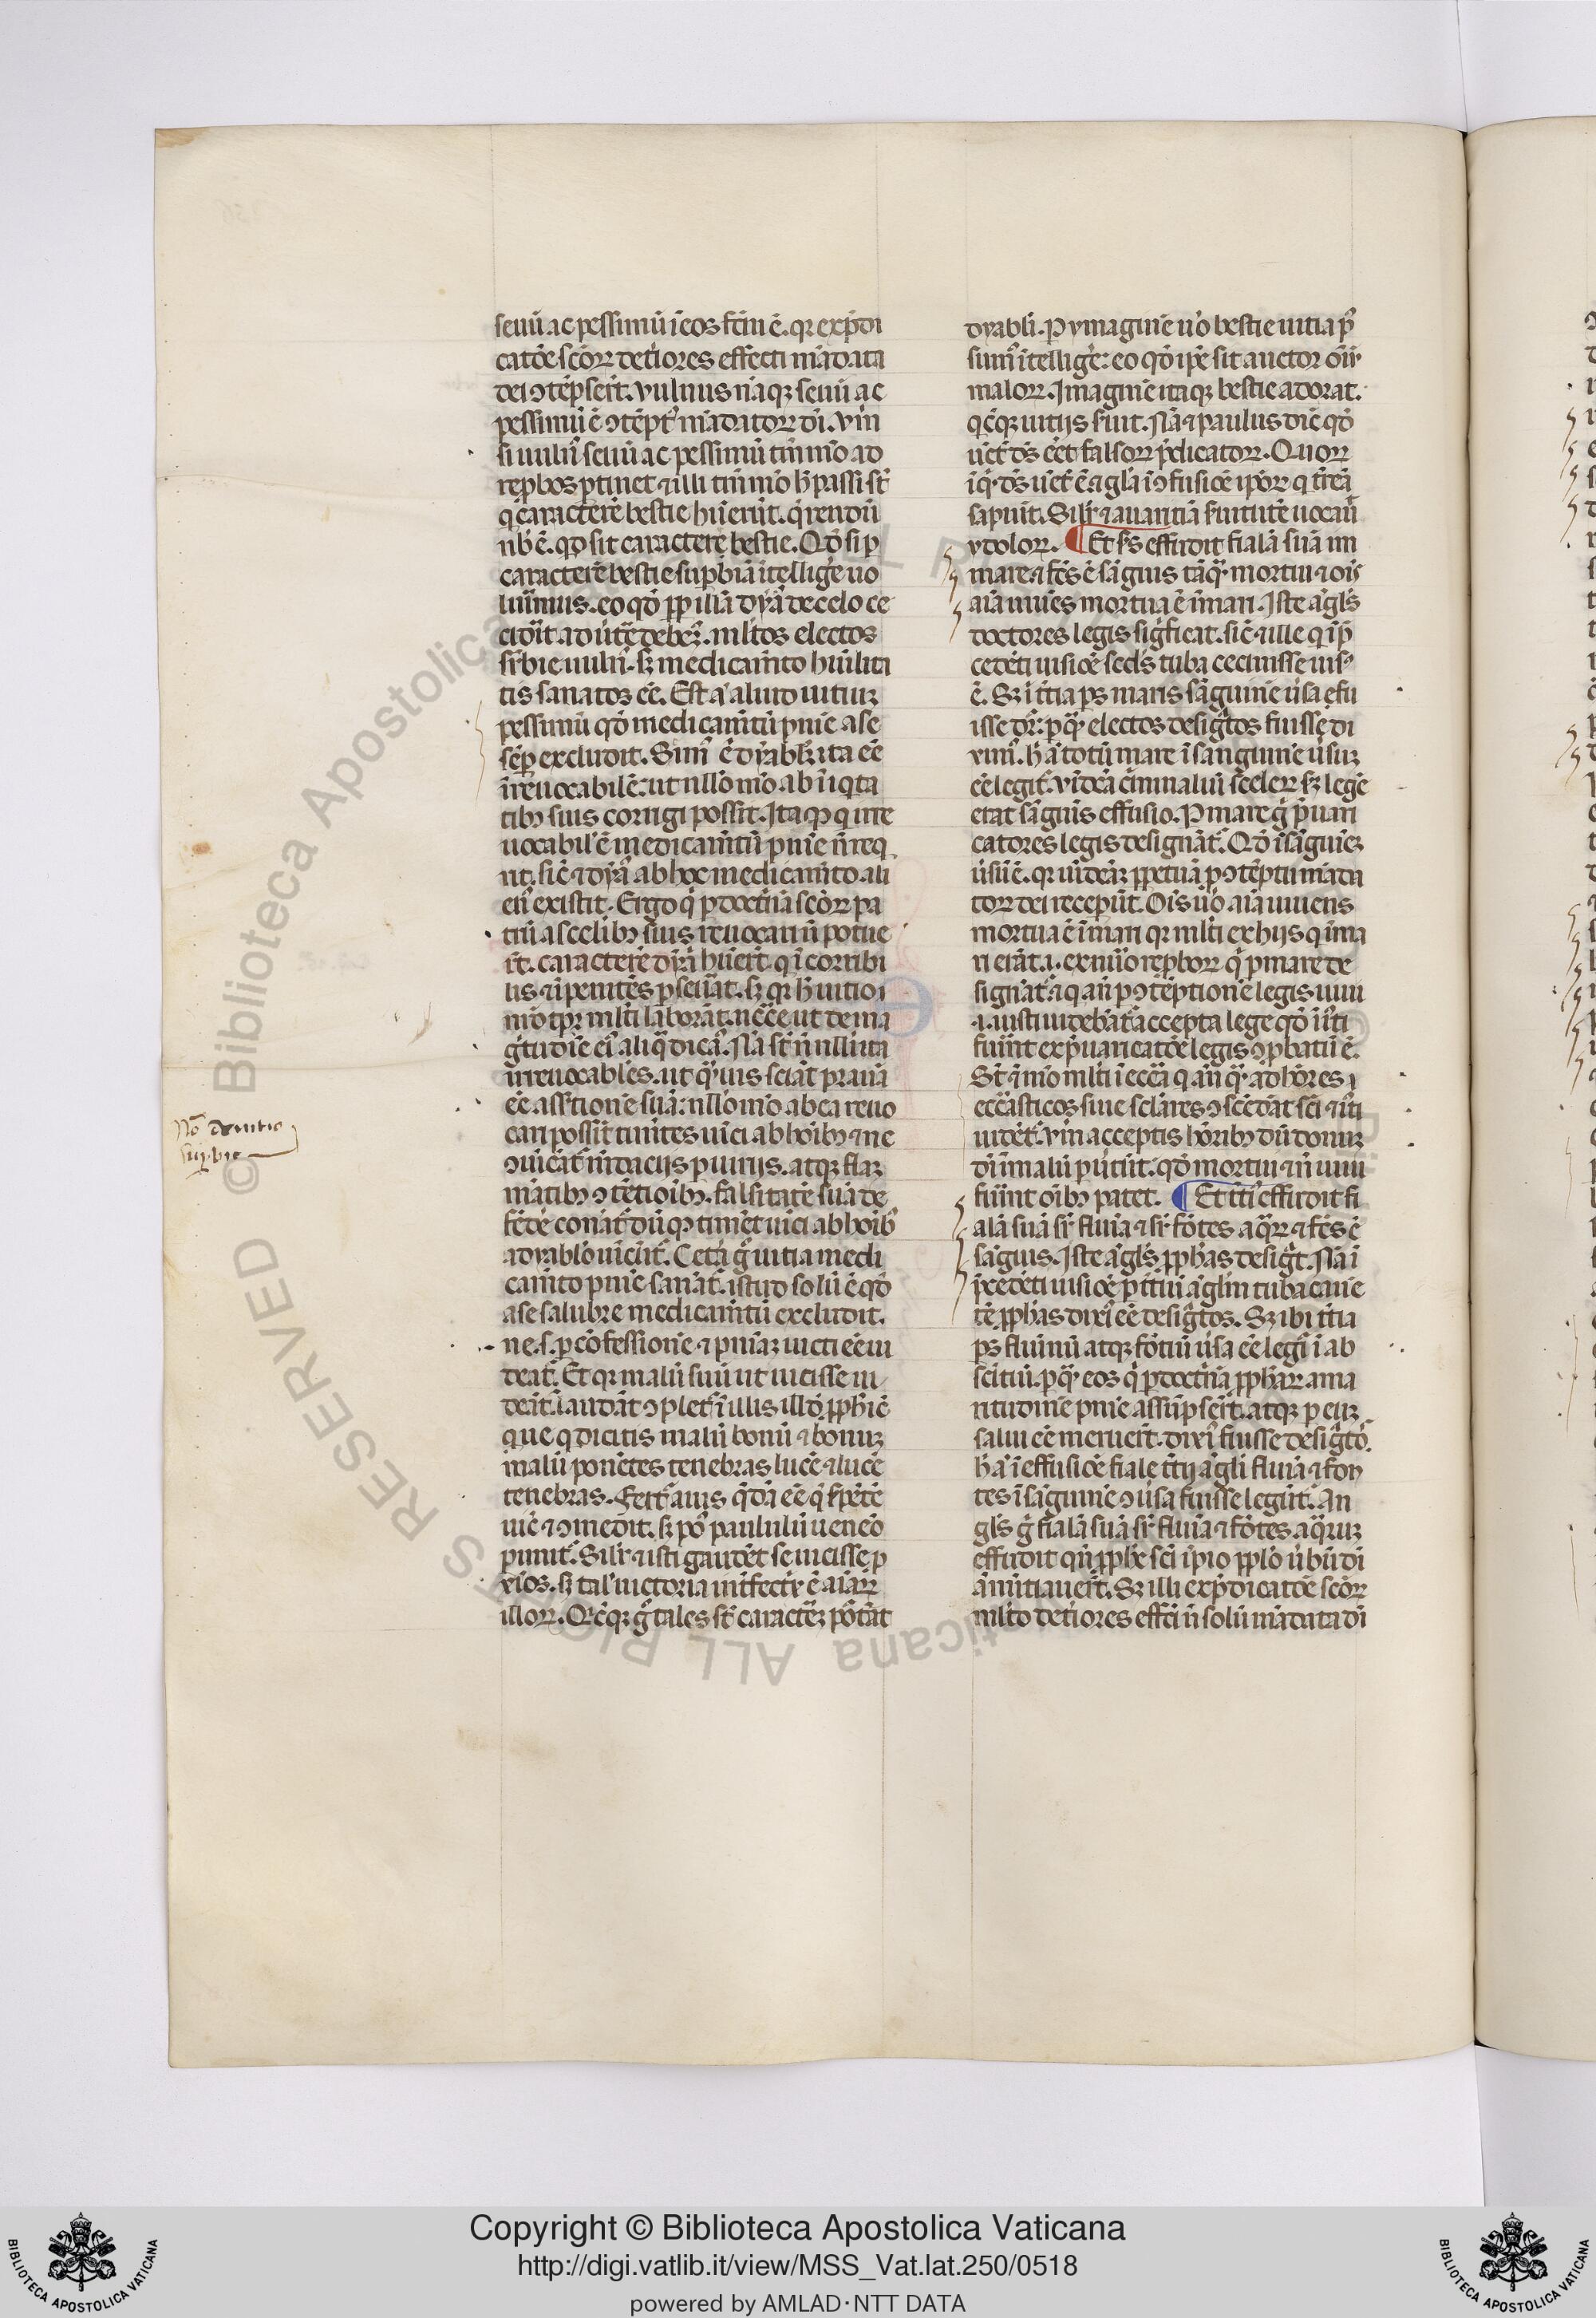 seuū ac pessimū ī eos fc̄m ē. qr ex p̄di
catōe sc̄oꝝ det̓iores effecti mādata
dei ꝯtēpser̄t. vulnus nāqꝫ seuū ac
pessimū ē ꝯtēpt᷒ mādatoꝝ dī. vn̄
si uuln᷒ seuū ac pessimū tm̄mō ad
rep̱bos p̱tinet ⁊ illi tm̄mō h̓ passi st̄
q̇ caracterē bestie hūerūt. q̇rendū
nb̄ ē. qd̓ sit caracterē bestie. Qd̓ si p̱
caracterē bestie sup̱biā ītelligē uo
luīmus. eo qd̓ ꝓp̱ illā dyā de celo ce
cidīt.
sr̄bie uuln᷒. sꝫ medicamīto hūilita
tis sanatos eē. Est a᷒ aliud uitiuꝫ
pessimū qd̓ medicamītū pnīe a se
sēp̱ excludit.
īreuocabilē: ut nllō mō ab īiq̇ta
tibꝫ suis corrigi possit. Itaqꝫ q̇ irre
uocabil̓ ē medicamītū pnīe n̄ req̇
rit. sic̄ ⁊ dyā ab hoc medicamīto ali
en᷒ existit. Ergo q̇ p̱ doctnā sc̄oꝝ pa
trū a scelibꝫ suis reuocari n̄ potue
rt̄. caracterē dyā hūerīt. q̇ īcorribi
lis ⁊ īpenitēs p̱seūat. sꝫ qr h̓ uitio ī
mō tpr̄ ml̓ti laborāt. ncc̄e ut de ma
gtudīe ei᷒ aliq̇ dicā. Nā st̄ n̄nulli ita
irreuocabiles. ut q̇uis sciāt prauā
eē assr̄tionē suā: nllō mō ab ea reuo
cari possīt timītes uici ab hoībꝫ ⁊ ne
ꝯuicāt᷒ mdacijs p̱uīrijs. atqꝫ flaꝫ
mātibꝫ ꝯtētioībꝫ. falsitatē suā de
fēdē conāt᷒ dū qꝫ timēt uici ab hoībꝫ
a dyablo uīcūt᷒. Cetā g᷒ uitia medi
camīto pnīe sanāt᷒. istud solū ē qd̓
a se salubre medicamītū excludit.
ne .s. p̱ cōfessionē ⁊ pnīaꝫ uicti eē ui
deāt᷒. Et qr malū suū ut uicisse ui
deāt᷒. laudāt ꝯplet᷒ ī illis illd̓ ꝓph̄ē
que q̇ dicitis malū bonū ⁊ bonuꝫ
malū ponētes tenebras lucē ⁊ lucē
tenebras. Fert᷒ auis q̇dā eē q̇ s̓pētē
uic̄ ⁊ ꝯmedit. sꝫ po᷒ paululū uenēo
p̱imit᷒. Silr̄ ⁊ isti gaudēt se uicisse p̱
xīos. sꝫ tal̓ uictoria int̓fectx̄ ē aīaꝝ
illoꝝ. Qc̄qꝫ g᷒ tales st̄ caractēꝫ pōtāt
dyabli. P̱ ymaginē uō bestie uitia p̱
sum᷒ ītelligē: eo qd̓ ip̄e sit auctor oīū
maloꝝ. Imaginē itaqꝫ bestie adorāt.
qc̄qꝫ uitijs s̓uīt. Nā ⁊ paulus dic̄ qd̓
uēt᷒ ds̄ eēt falsoꝝ p̄dicatoꝝ. Quoꝝ
īq̇t. ds̄ uēt᷒ ē. ⁊ gl̄a ī ꝯfusiōe ip̄oꝝ q̇ tr̄eā
sapiūt. Silr̄ ⁊ auaritiā s̓uitutē uocauī
ydoloꝝ. ¶ Et s̓c᷒s effudit fialā suā in
mare. ⁊ fc̄s ē sāguis tāq̇ mortui ⁊ oīs
aīa uiuēs mortua ē ī mari. Iste ang̓ls
doctores legis sigficat. sic̄ ⁊ ille q̇ ī p̄
cedēti uisiōe sec̄ds tuba cecinisse uis᷒
ē. Sꝫ ī tt̓ia ps̄ maris sāguinē ūsa ē fu
isse dr̄: p̱ q̇ electos desigtos fuisse di
xim᷒. h̓ a᷒ totū mare ī sanguinē ūsuꝫ
eē legit᷒. vīdeā cīminaliū sceleꝝ sꝫ legē
erat sāguīs effusio. P̱ mare g᷒ p̄uari
catores legis designāt᷒. Qd̓ ī sāguiēꝫ
ūsū ē. qr uīdeāꝫ ꝓpetuā p̱ ꝯtēptū māda
toꝝ dei recepūt. Oīs uō aīa uiuens
mortua ē ī mari qr ml̓ti ex hijs q̇ ī ma
ri erāt .i. ex nūo rep̱boꝝ q̇ p̱ mare de
signāt᷒. ⁊ q̇ ān p̱ ꝯtēptionē legis uiui
.i. iusti uidebāt᷒ accepta lege qd̓ īīti
fuīnt ex p̄uaricatōe legis ꝯp̱batū ē.
St̄ ⁊ mō ml̓ti ī ecc̄a q̇ ān q̇ ad hōres ī
ecc̄asticos siue sclāres ꝯscēdāt sc̄i ⁊ īti
uidēt᷒. vn̄ acceptis hōribꝫ dū donuꝫ
dī ī malū ūtūt᷒. qd̓ mortui ⁊ n̄ uiui
fuīnt oībꝫ patet. ¶ Et tt̓i᷒ effudit fi
alā suā sr̄ fluīa ⁊ sr̄ fōtes aq̇ꝝ ⁊ fc̄s ē
sāguis. Iste ang̓ls ꝓph̄as desigt. Nā ī
p̄cedēti uisiōe p̱ tt̓iū āglm tuba canē
tē ꝓph̄as dixi᷒ eē desigtos. Sꝫ ibi tt̓ia
ps̄ fluīnū atqꝫ fōtiū ūsa eē legi᷒ ī ab
scītiū. p̱ q̇ eos q̇ p̱ doctnā ꝓph̄aꝝ ama
ritudinē pnīe assūpser̄t. atqꝫ p̱ eaꝫ
salui eē meruer̄t. dixi᷒ fuisse desigtos.
h̓ a᷒ ī effusiōe fiale tt̓ij āgli fluīa ⁊ fon
tes ī sāguinē ꝯūsa fuisse legūt᷒. An
gls̄ g᷒ fialā suā sr̄ fluīa ⁊ fōtes aq̇ruꝫ
effudit qn̄ ꝓph̄e sc̄i īpio ꝓplo ūbū dī
ānūtiauer̄t. Sꝫ illi ex p̄dicatōe sc̄oꝝ
ml̓to det̓iores effc̄i n̄ solū mādata dī
Copyright © Biblioteca Apostolica Vaticana
http://digi.vatlib.it/view/MSS_Vat.lat.250/0518
powered by AMLAD·NTT DATA
BIBLIOTECA APOSTOLICA VATICANA
BIBLIOTECA APOSTOLICA VATICANA